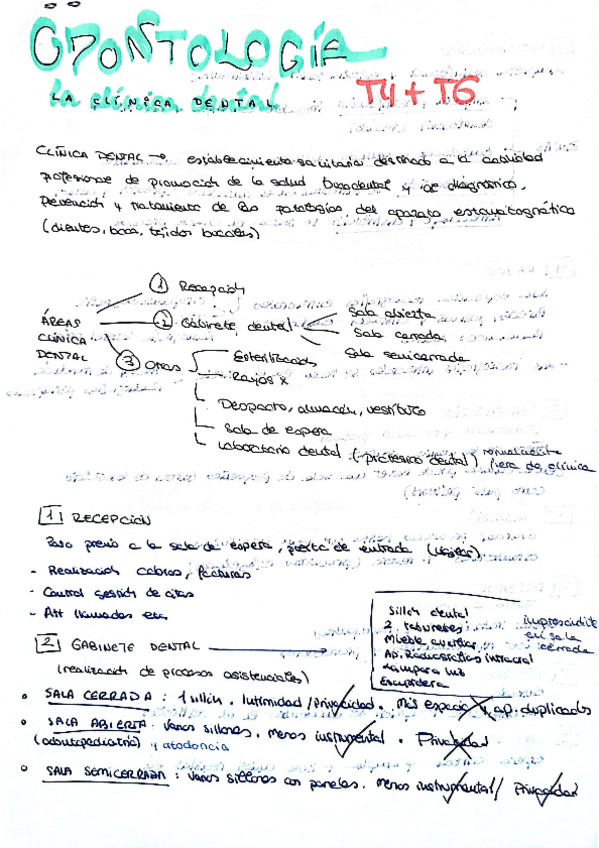 ODONTOLOGÍA
LA CLÍNICA DENTAL T4 + T6
CLÍNICA DENTAL → establecimiento sanitario destinado a la actividad
profesional de promoción de la salud bucodental y de diagnóstico,
prevención y tratamiento de las patologías del aparato estomatognático
(dientes, boca, tejidos bucales)
ÁREAS CLÍNICA DENTAL
1 Recepción
2 Gabinete dental
Sala abierta
Sala cerrada
Sala semicerrada
3 Otras
Esterilización
Rayos X
Despacho, almacén, vestuario
Sala de espera
Laboratorio dental (protésico dental) normalmente fuera de clínica
1 RECEPCIÓN
Paso previo a la sala de espera, puerta de entrada
- Realización cobros, facturas
- Control gestión de citas
- Att llamadas etc
2 GABINETE DENTAL
(realización de procesos asistenciales)
Sillón dental
2 taburetes
Mueble auxiliar
Ap. Radiografías intraoral
Lámpara luz
Escupidera
imprescindible en sala cerrada
SALA CERRADA : 1 sillón. Intimidad / Privacidad. Más espacio y ap. duplicados
SALA ABIERTA : Varios sillones. Menos instrumental. Privacidad
(odontopediatría) y ortodoncia
SALA SEMICERRADA : Varios sillones con paneles. Menos instrumental / Privacidad